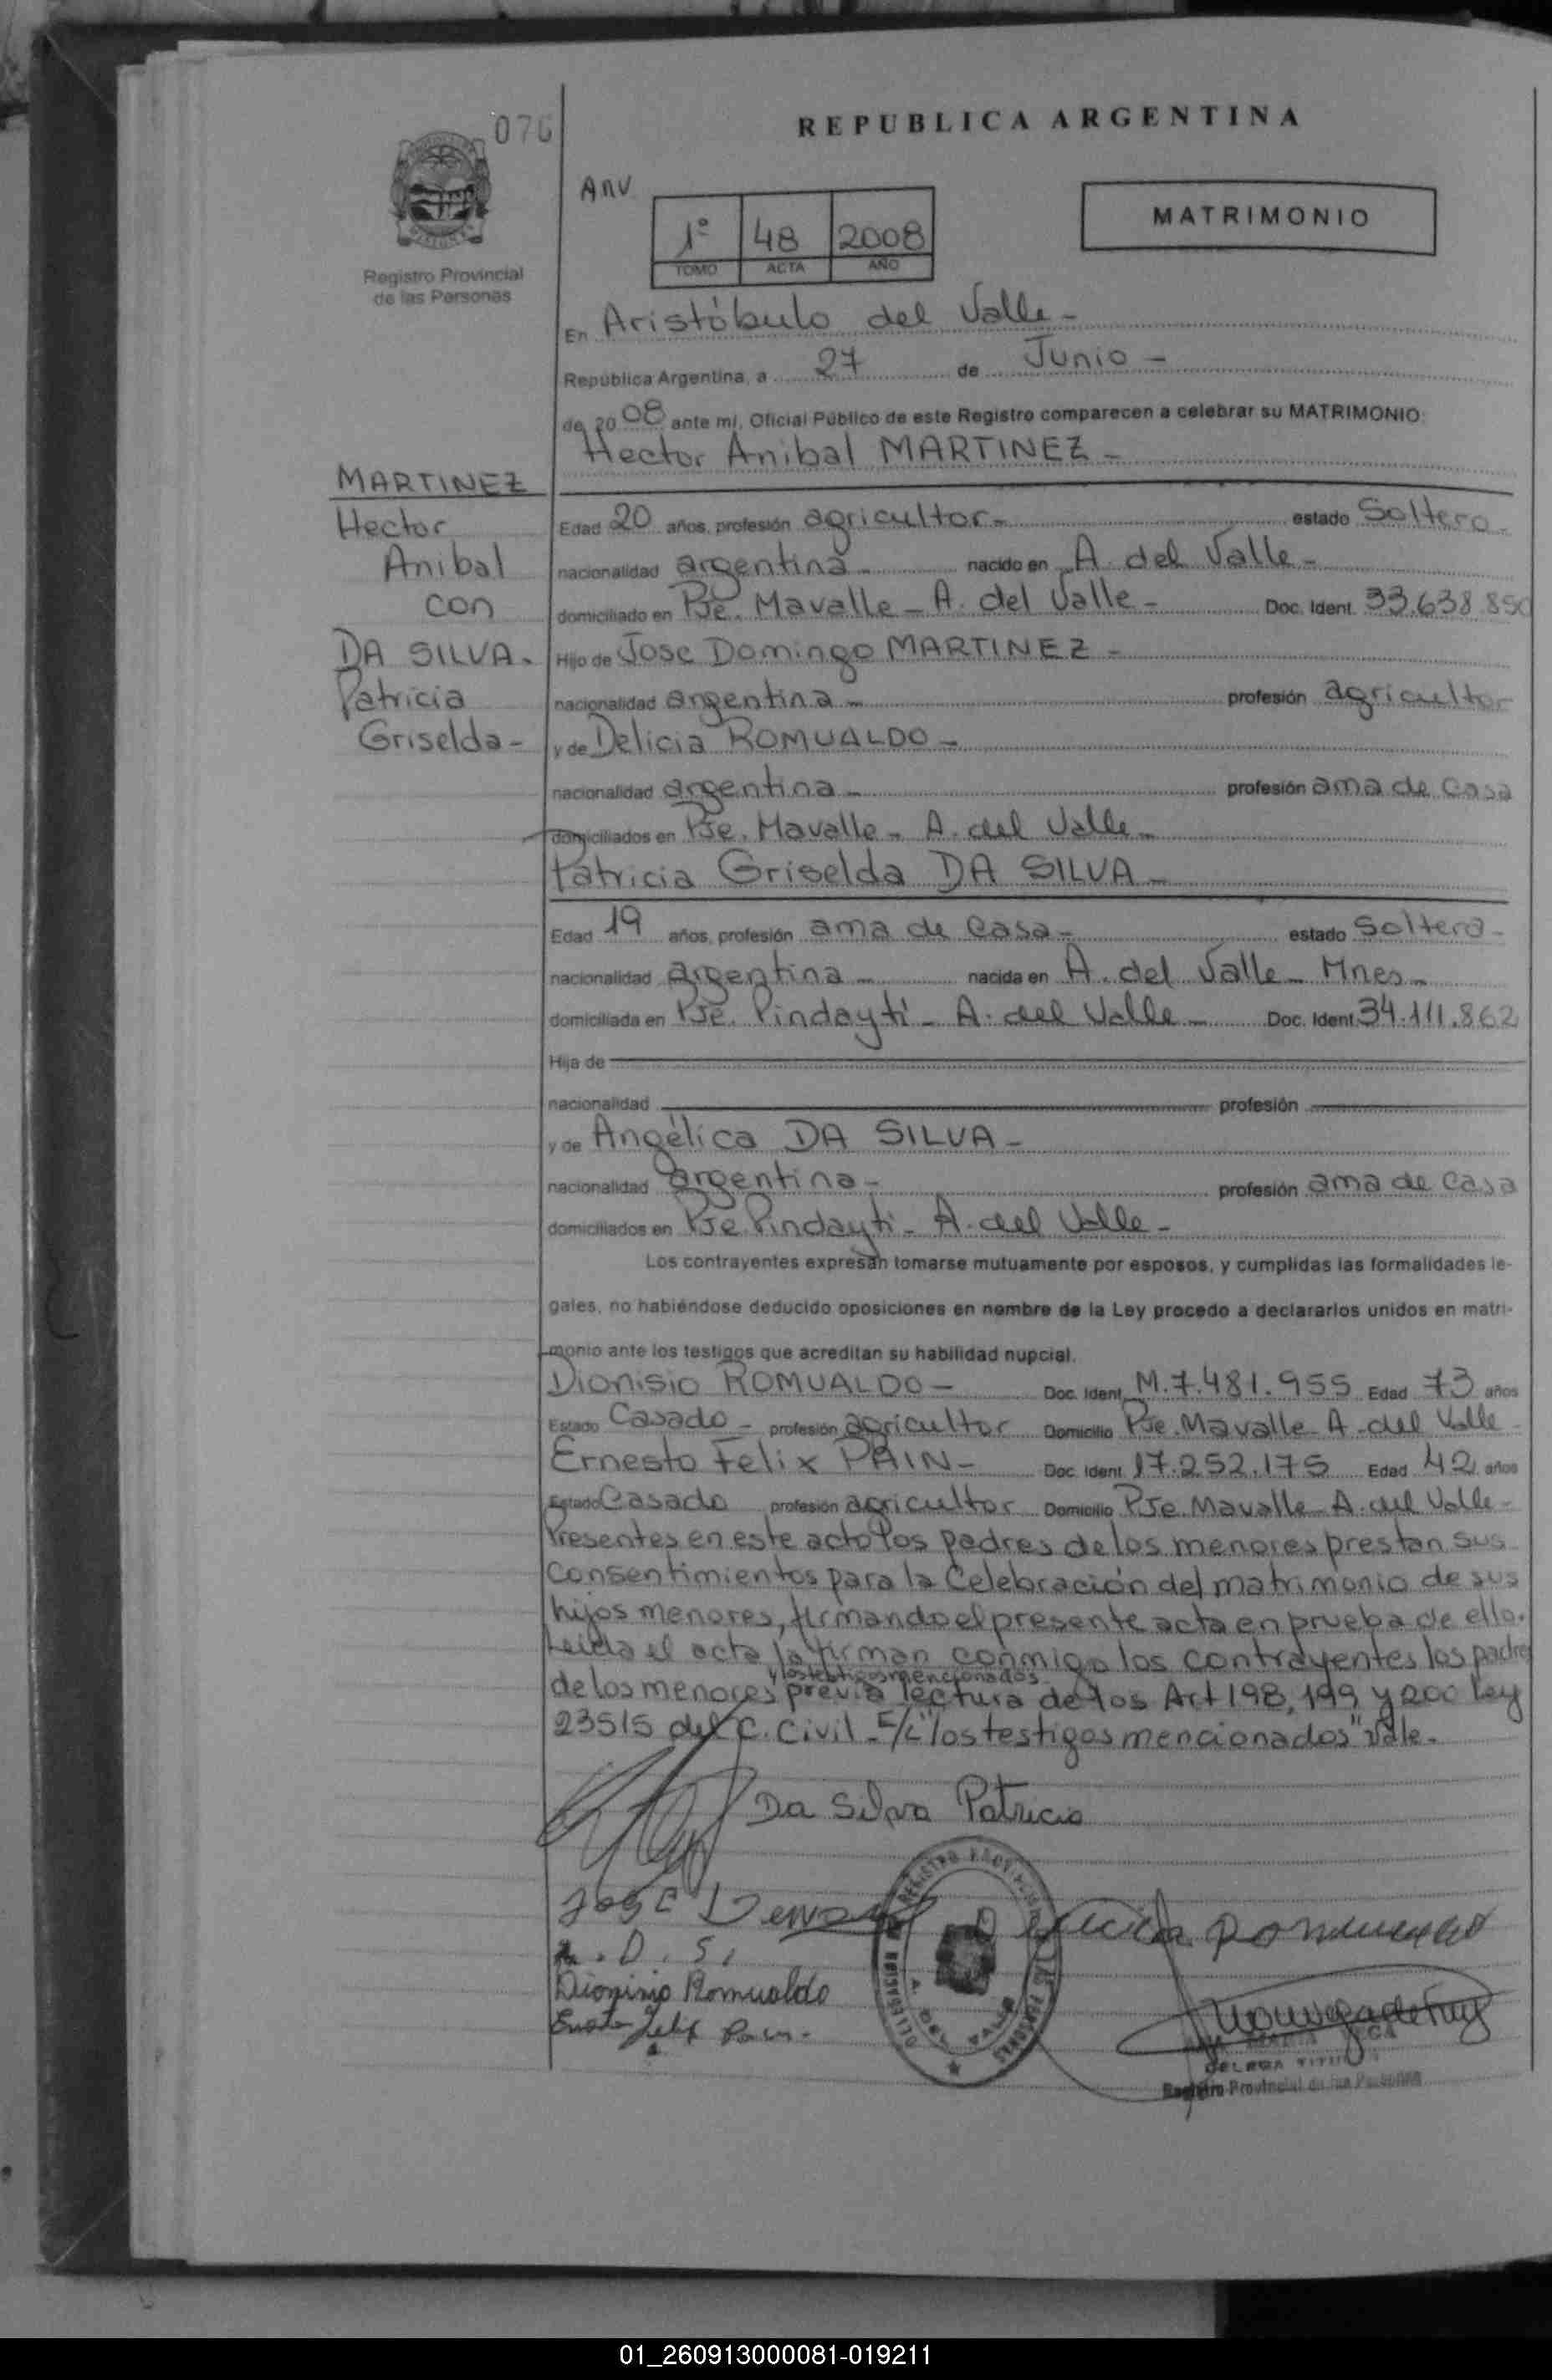 076
REPUBLICA ARGENTINA
Registro Provincial
de las Personas
Anv
1º 48 2008
TOMO ACTA AÑO
MATRIMONIO
En Aristóbulo del Valle -
República Argentina, a 27 de Junio -
de 20 08 ante mi, Oficial Público de este Registro comparecen a celebrar su MATRIMONIO:
Hector Anibal MARTINEZ -
MARTINEZ
Hector
Anibal
con
DA SILVA.
Patricia
Griselda -
Edad 20 años, profesión agricultor - estado Soltero -
nacionalidad argentina - nacido en A. del Valle -
domiciliado en Pje. Mavalle - A. del Valle - Doc. Ident. 33.638.850
Hijo de Jose Domingo MARTINEZ -
nacionalidad argentina - profesión agricultor
y de Delicia ROMUALDO -
nacionalidad argentina - profesión ama de casa
domiciliados en Pje. Mavalle - A. del Valle -
Patricia Griselda DA SILVA -
Edad 19 años, profesión ama de casa - estado Soltera -
nacionalidad argentina - nacida en A. del Valle - Mnes -
domiciliada en Pje. Pindaytí - A. del Valle - Doc. Ident. 34.111.862
Hija de
nacionalidad profesión
y de Angélica DA SILVA -
nacionalidad argentina - profesión ama de casa
domiciliados en Pje Pindaytí - A. del Valle -
Los contrayentes expresan tomarse mutuamente por esposos, y cumplidas las formalidades le-
gales, no habiéndose deducido oposiciones en nombre de la Ley procedo a declararlos unidos en matri-
monio ante los testigos que acreditan su habilidad nupcial.
Dionisio ROMUALDO - Doc. Ident. M.7.481.955 Edad 73 años
Estado Casado - profesión agricultor Domicilio Pje. Mavalle - A. del Valle
Ernesto Felix PAIN - Doc. Ident. 17.252.175 Edad 42 años
Estado Casado profesión agricultor Domicilio Pje Mavalle - A. del Valle -
Presentes en este acto los padres de los menores prestan sus
Consentimientos para la Celebración del matrimonio de sus
hijos menores, firmando el presente acta en prueba de ello.
Leida el acta la firman conmigo los contrayentes los padres
y los testigos mencionados
de los menores previa lectura de los Art 198, 199 y 200 Ley
23515 del C. Civil - E/L "los testigos mencionados" Vale.
Da Silva Patricia
José
A. D. S.
Dionisio Romualdo
Felix Pain -
Registro Provincial de las Personas
01_260913000081-019211